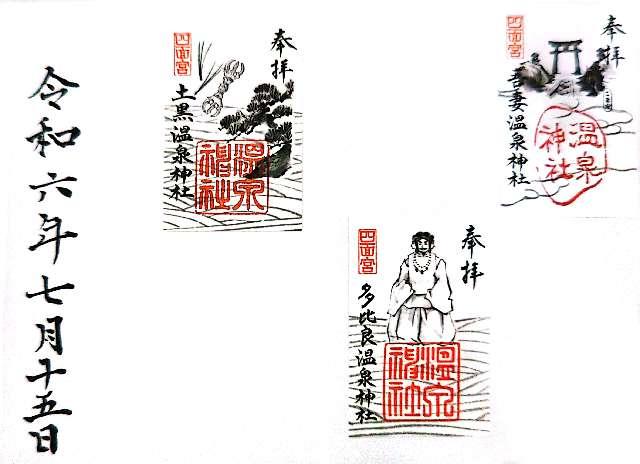 奉拝
四面宮
吾妻温泉神社
温泉
神社
奉拝
四面宮
多比良温泉神社
温泉
神社
奉拝
四面宮
土黒温泉神社
温泉
神社
令和六年七月十五日